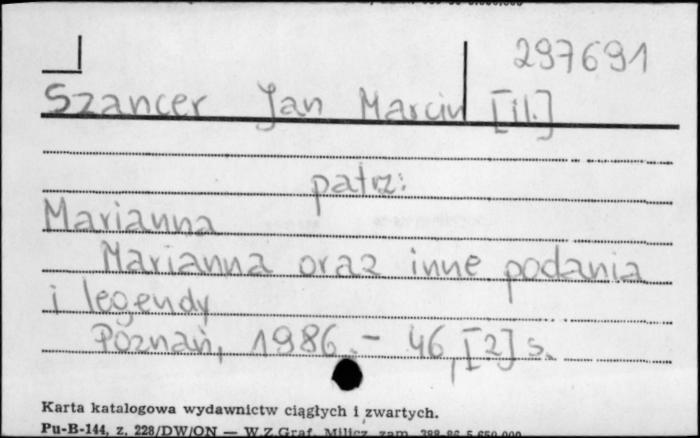 297691
Szancer Jan Marcin [il.]
patrz:
Marianna
Marianna oraz inne podania
i legendy
Poznań, 1986. - 46, [2] s.
Karta katalogowa wydawnictw ciągłych i zwartych.
Pu-B-144, z. 228/DW/ON — W.Z.Graf. Milicz zam. 398-86 5.650.000